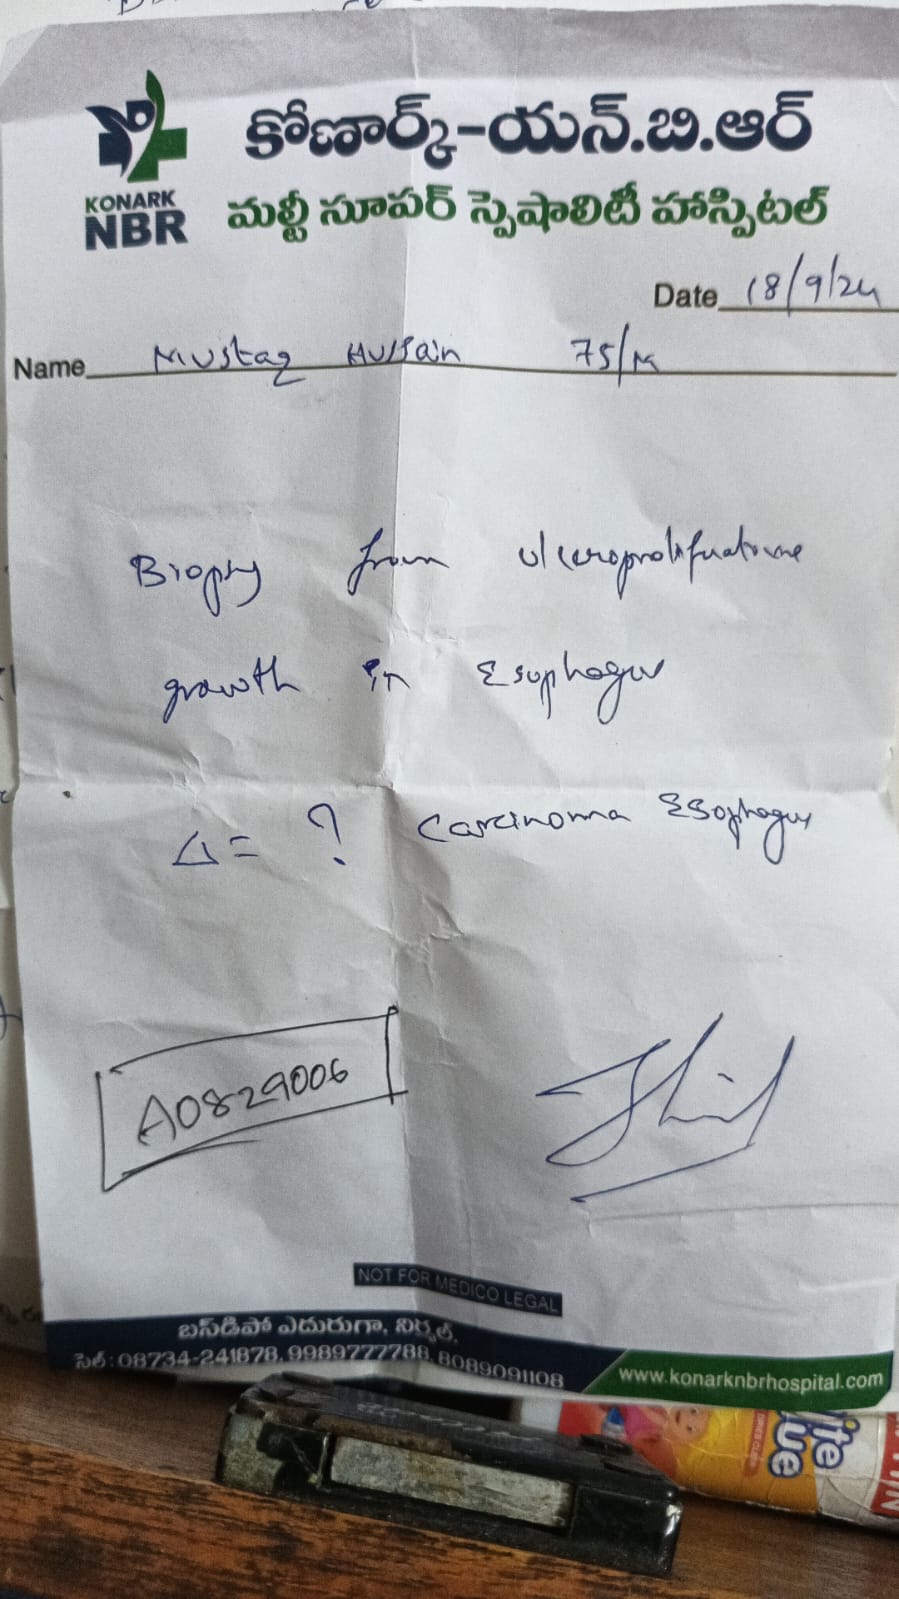 కోణార్క్-యన్.బి.ఆర్
KONARK
NBR
మల్టీ సూపర్ స్పెషాలిటీ హాస్పిటల్
Date 18/9/24
Name Mustaq Hussain 75/M
Biopsy from ulceroproliferative
growth in Esophagus
Δ= ? Carcinoma Esophagus
A0829006
NOT FOR MEDICO LEGAL
బస్‌డిపో ఎదురుగా, నిర్మల్.
సెల్: 08734-241878, 9989777788, 8089091108
www.konarknbrhospital.com